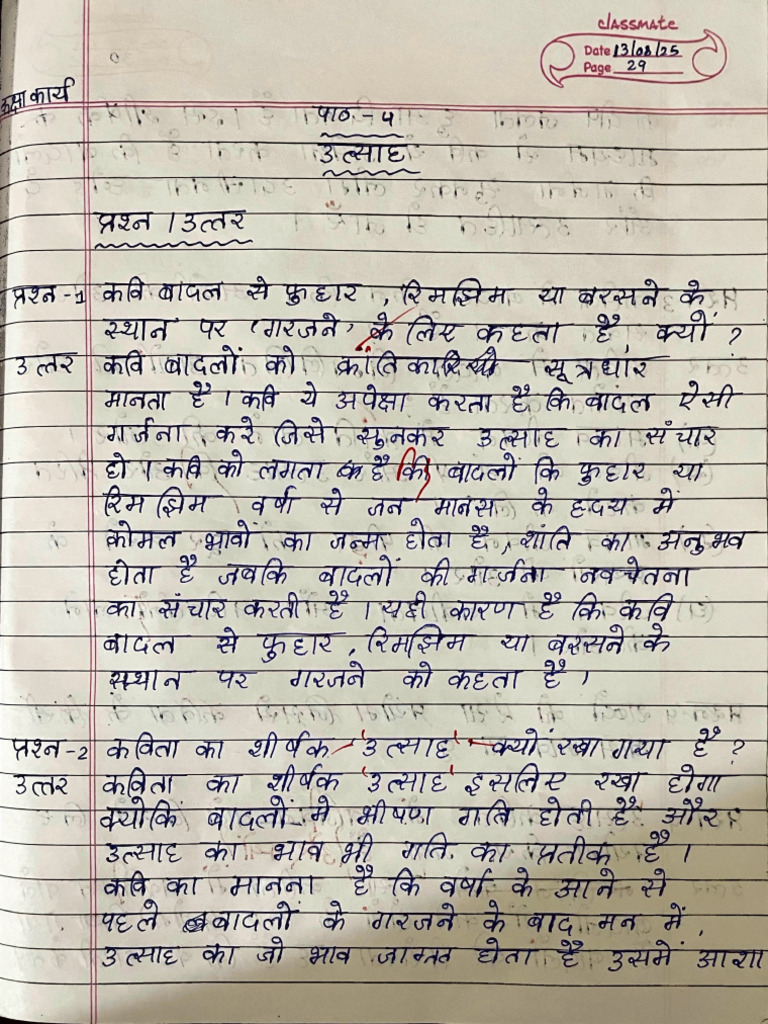 classmate
Date 13/08/25
Page 29
कक्षा कार्य
पाठ - 5
उत्साह
प्रश्न / उत्तर
प्रश्न -1 कवि बादल से फुहार , रिमझिम या बरसने के
स्थान पर 'गरजने' के लिए कहता है, क्यों ?
उत्तर कवि बादलों को क्रांतिकारियो सूत्रधार
मानता है । कवि ये अपेक्षा करता है कि बादल ऐसी
गर्जना करे जिसे सुनकर उत्साह का संचार
हो । कवि को लगता है कि बादलों कि फुहार या
रिमझिम वर्षा से जन मानस के हृदय में
कोमल भावों का जन्म होता है, शांति का अनुभव
होता है जबकि बादलों की गर्जना नवचेतना
का संचार करती है । यही कारण है कि कवि
बादल से फुहार , रिमझिम या बरसने के
स्थान पर गरजने को कहता है ।
प्रश्न -2 कविता का शीर्षक 'उत्साह' क्यों रखा गया है ?
उत्तर कविता का शीर्षक 'उत्साह' इसलिए रखा होगा
क्योकिं बादलों मे भीषण गति होती है और
उत्साह का भाव भी गति का प्रतीक है ।
कवि का मानना है कि वर्षा के आने से
पहले बादलों के गरजने के बाद मन में
उत्साह का जो भाव जाग्रत होता है उसमें आशा